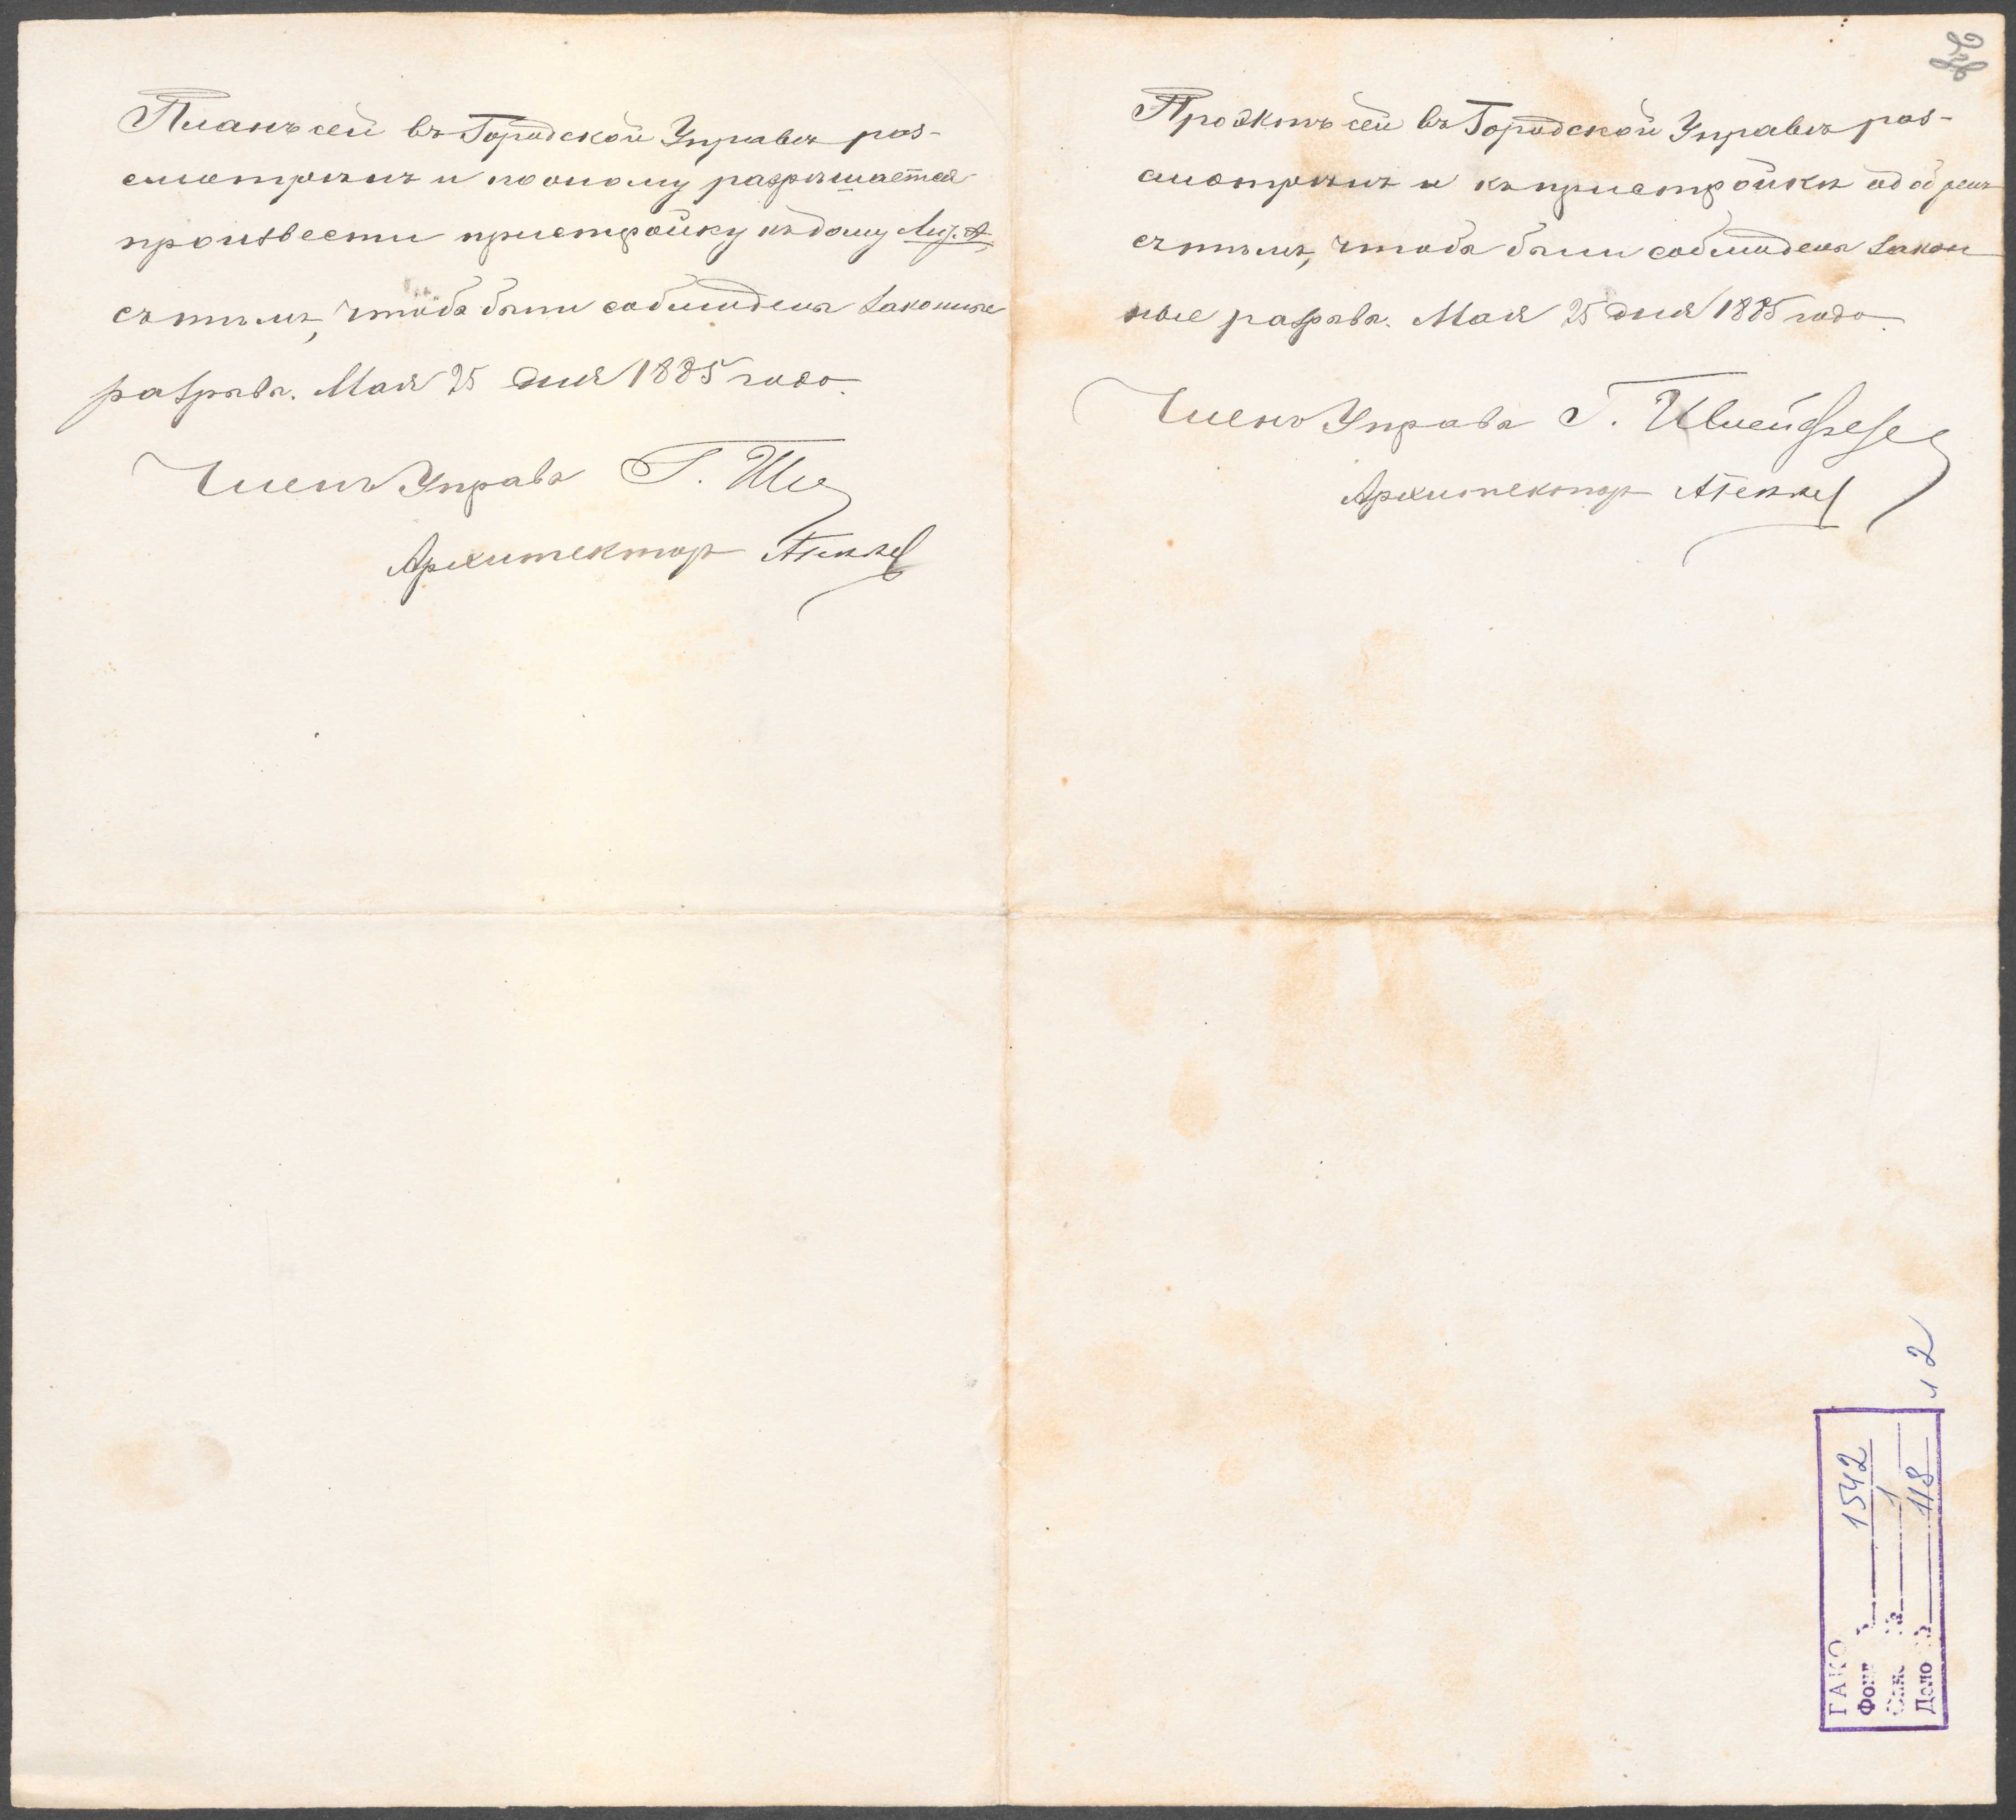 Планъ сей въ Городской Управѣ раз-
смотрѣнъ и по оному разрѣшается
произвести пристройку къ дому Лит. А
съ тѣмъ, чтобы были соблюдены законные
разрывы. Мая 25 дня 1885 года.
Членъ Управы Г. Шле
Архитекторъ
Проэктъ сей въ Городской Управѣ раз-
смотрѣнъ и къ пристройкѣ одобренъ
съ тѣмъ, чтобы были соблюдены закон
ные разрывы. Мая 25 дня 1885 года.
Членъ Управы Г.
Архитекторъ
л 2
ГАКО
Фонд № 1542
Опись № 1
Дело № 118